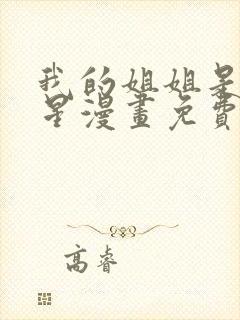 我的姐姐是
星漫畫免費
高睿